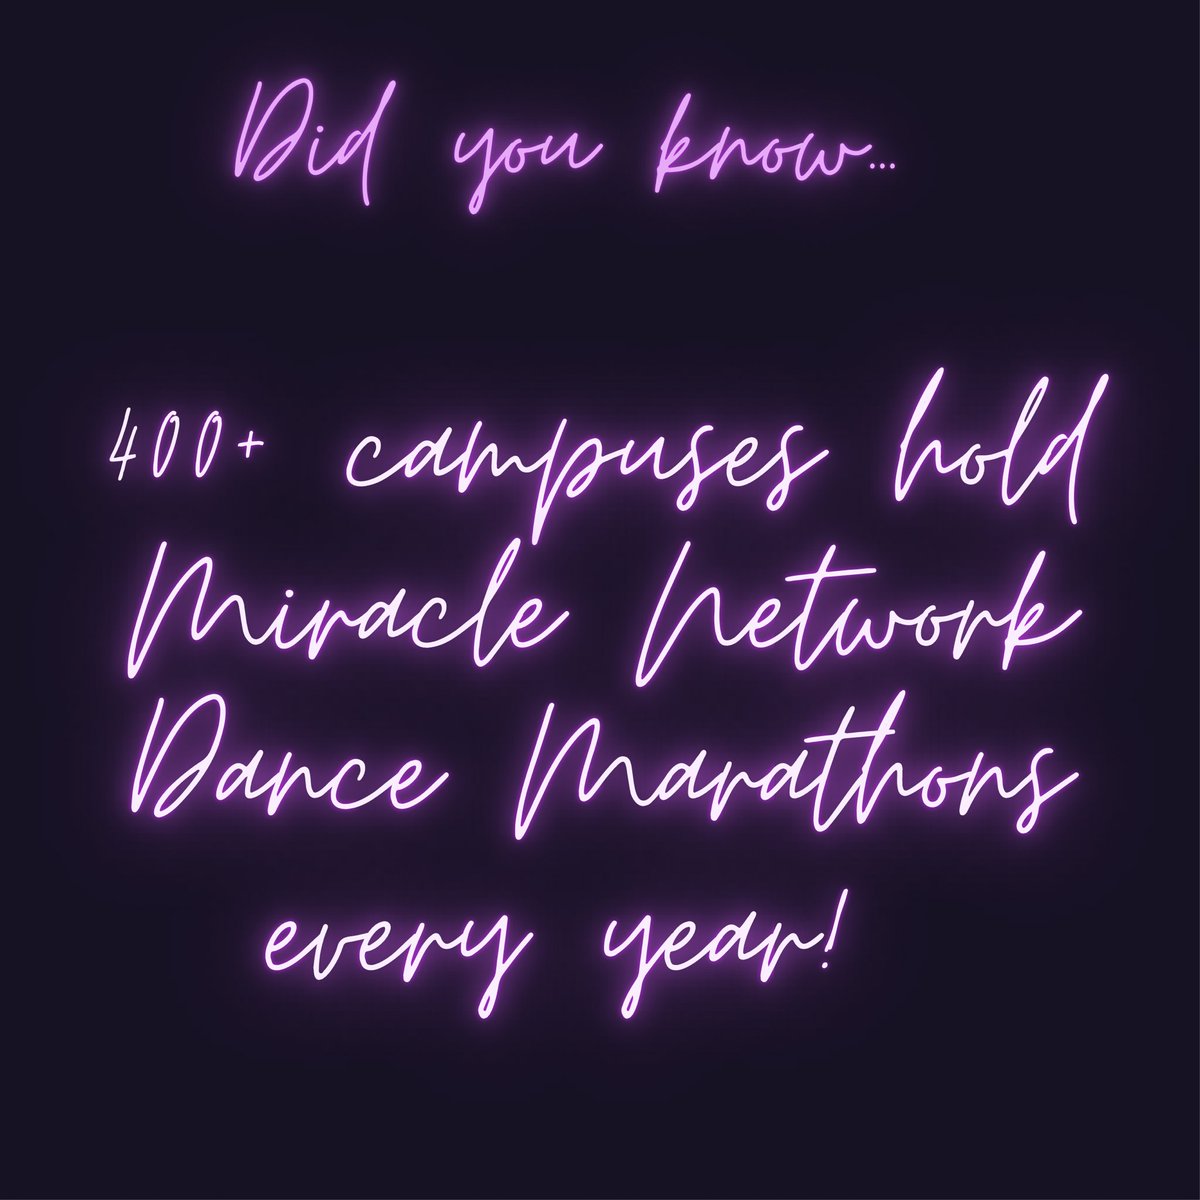 Did you know...
400+ campuses hold
Miracle Network
Dance Marathons
every year!